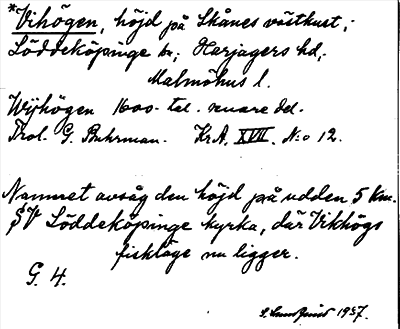 *Vihögen, höjd på Skånes västkust;
Löddeköpinge sn; Harjagers hd,
Malmöhus l.
Wijhögen 1600-tal. senare del.
Trol. G. Buhrman. Kr.A. XVII. N:o 12.
Namnet avsåg den höjd på udden 5 km.
SV Löddeköpinge kyrka, där Vikhögs
fiskläge nu ligger.
G. 4.
1937.